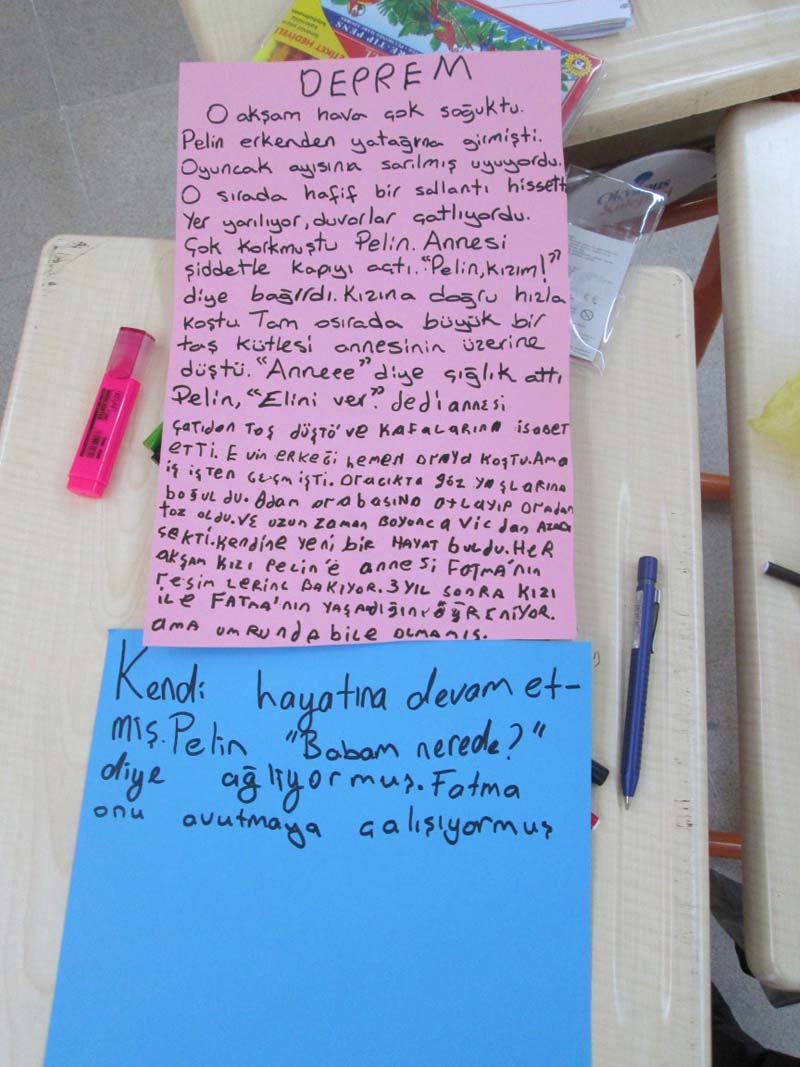 ETİKET HEDİYELİ
DEPREM
O akşam hava çok soğuktu.
Pelin erkenden yatağına girmişti.
Oyuncak ayısına sarılmış uyuyordu.
O sırada hafif bir sallantı hissett
Yer yarılıyor, duvarlar çatlıyordu.
Çok korkmuştu Pelin. Annesi
şiddetle kapıyı açtı. "Pelin, kızım!"
diye bağırdı. Kızına doğru hızla
koştu Tam osırada büyük bir
taş kütlesi annesinin üzerine
düştü. "Anneee" diye çığlık attı
Pelin, "Elini ver." dedi annesi
çatıdan taş düştü ve KAFALARINA isabet
ETTİ. Evin erkeği hemen oraya koştu. Ama
iş işten geçmişti. Oracıkta göz yaşlarına
boğuldu. Adam arabasına atlayıp oradan
toz oldu. ve uzun zaman boyunca vicdan azabı
çekti. kendine yeni bir HAYAT buldu. HER
akşam kızı Pelin'e annesi FATMA'nın
resimlerine bakıyor. 3 yıl sonra kızı
ile FATMA'nın yaşadığını öğreniyor.
ama umrunda bile olmamış.
Kendi hayatına devam et-
miş. Pelin "Babam nerede?"
diye ağlıyormuş. Fatma
onu avutmaya çalışıyormuş